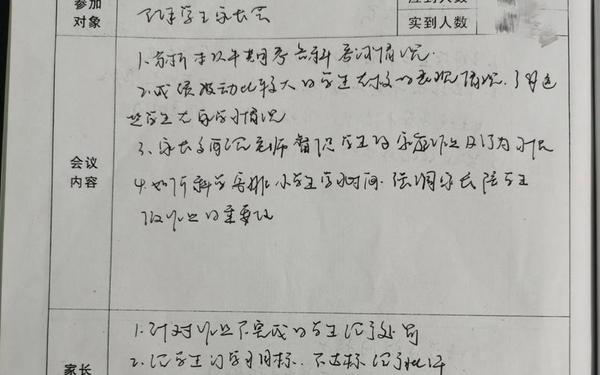 参加
对象
学生家长会
应到人数
实到人数
会议
内容
1.分析本次期考各科考试情况.
2.成绩波动比较大的学生在校的表现情况.了解这
些学生在家学习情况
3、家长多配合老师督促学生的家庭作业及行为习惯
4.如何科学安排小学生学习时间.强调家长陪学生
做作业的重要性
家长
1.针对作业不完成的学生给予处罚
2.给学生订学习目标.不达标给予批评